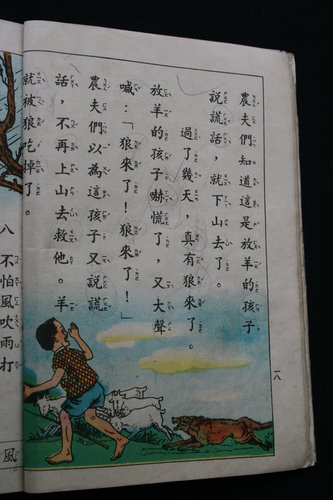 農夫們知道這是放羊的孩子
說謊話，就下山去了。
過了幾天，真有狼來了。
放羊的孩子嚇慌了，又大聲
喊：「狼來了！狼來了！」
農夫們以為這孩子又說謊
話，不再上山去救他。羊
就被狼吃掉了。
一八
八 不怕風吹雨打
風